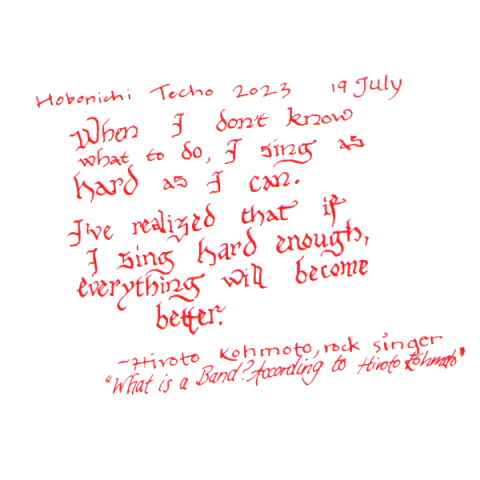 Hobonichi Techo 2023 19 July
When I don't know
what to do, I sing as
hard as I can.
I've realized that if
I sing hard enough,
everything will become
better.
-Hiroto Kohmoto, rock singer
"What is a Band? According to Hiroto Kohmoto"